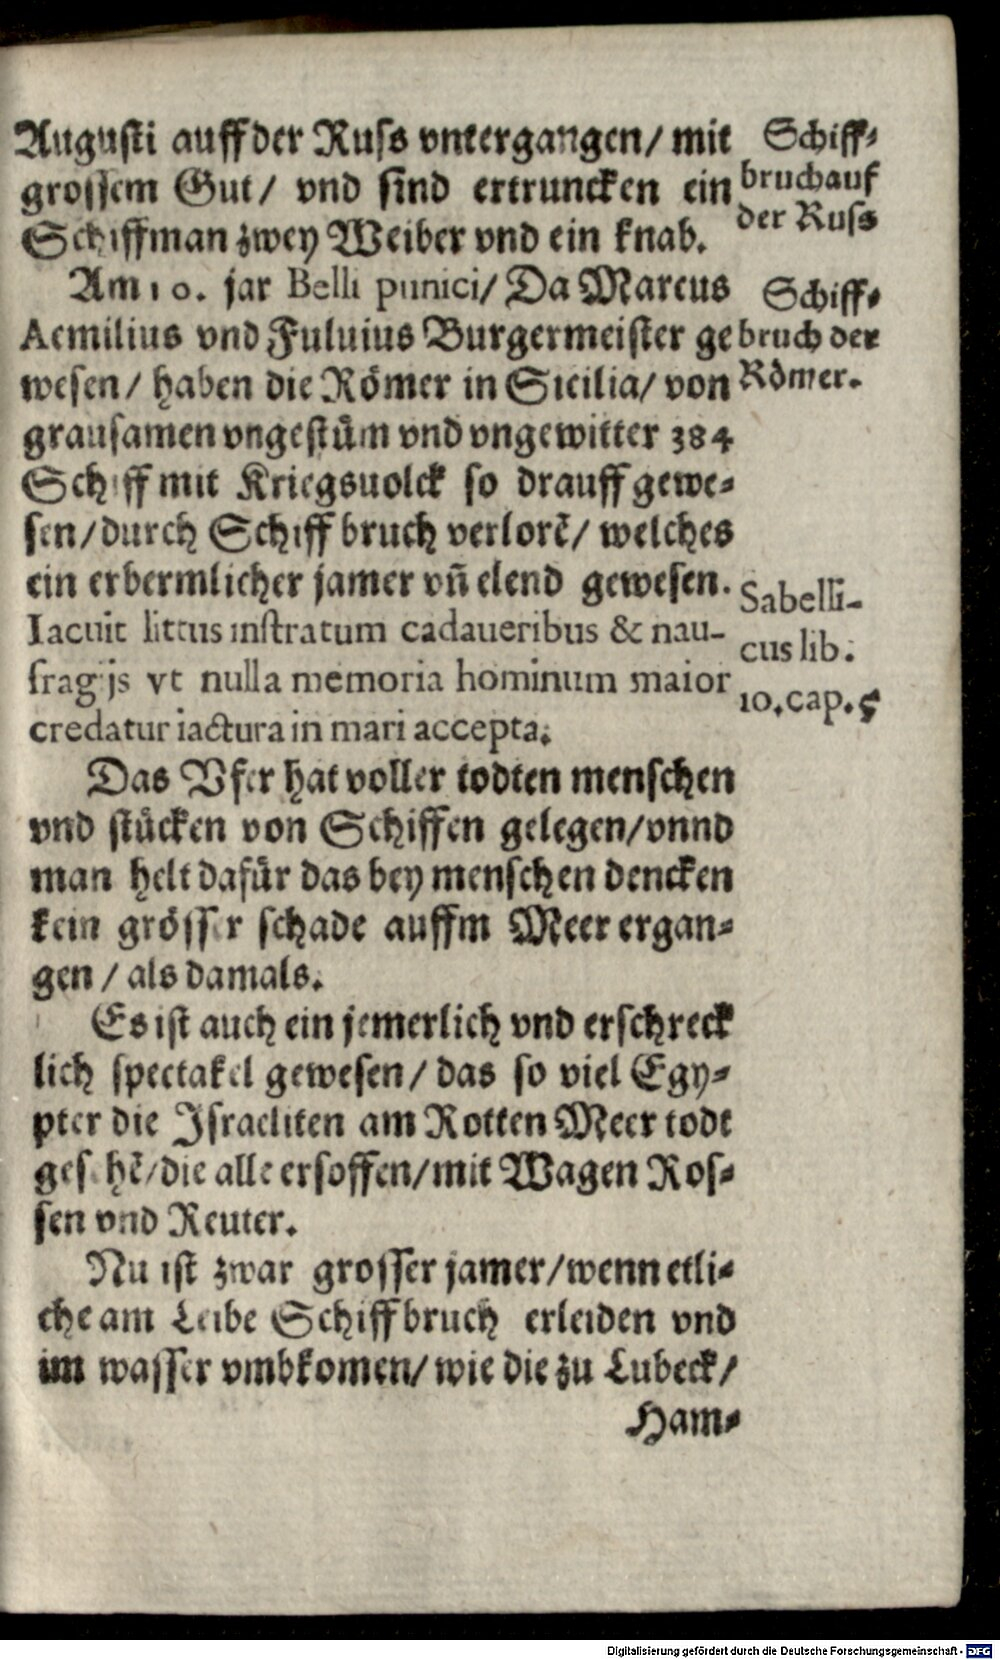 Augusti auff der Russ vntergangen/ mit
grossem Gut/ vnd sind ertruncken ein
Schiffman zwey Weiber vnd ein knab.
Schiff-
bruch auf
der Russ
Am 10. jar Belli punici/ Da Marcus
Aemilius vnd Fuluius Burgermeister ge
wesen/ haben die Römer in Sicilia/ von
grausamen vngestüm vnd vngewitter 384
Schiff mit Kriegsuolck so drauff gewe-
sen/ durch Schiffbruch verlorẽ/ welches
ein erbermlicher jamer vñ elend gewesen.
Schiff-
bruch der
Römer.
Iacuit littus instratum cadaueribus & nau-
fragijs vt nulla memoria hominum maior
credatur iactura in mari accepta.
Sabelli-
cus lib.
10. cap. 5
Das Vfer hat voller todten menschen
vnd stücken von Schiffen gelegen/ vnnd
man helt dafür das bey menschen dencken
kein grösser schade auffm Meer ergan-
gen/ als damals.
Es ist auch ein jemerlich vnd erschreck
lich spectakel gewesen/ das so viel Egy-
pter die Israeliten am Rotten Meer todt
gesehẽ/ die alle ersoffen/ mit Wagen Ros-
sen vnd Reuter.
Nu ist zwar grosser jamer/ wenn etli-
che am Leibe Schiffbruch erleiden vnd
im wasser vmbkomen/ wie die zu Lubeck/
Ham-
Digitalisierung gefördert durch die Deutsche Forschungsgemeinschaft - DFG